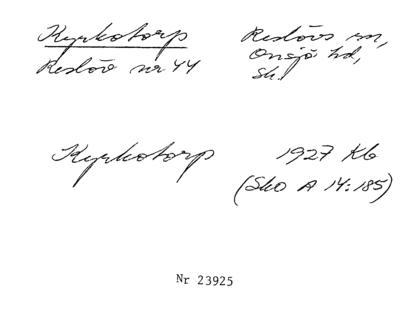 Kyrkotorp Reslövs sn,
Reslöv nr 44 Onsjö hd,
Sk.
Kyrkotorp 1927 Kb
(SkO A 14:185)
Nr 23925